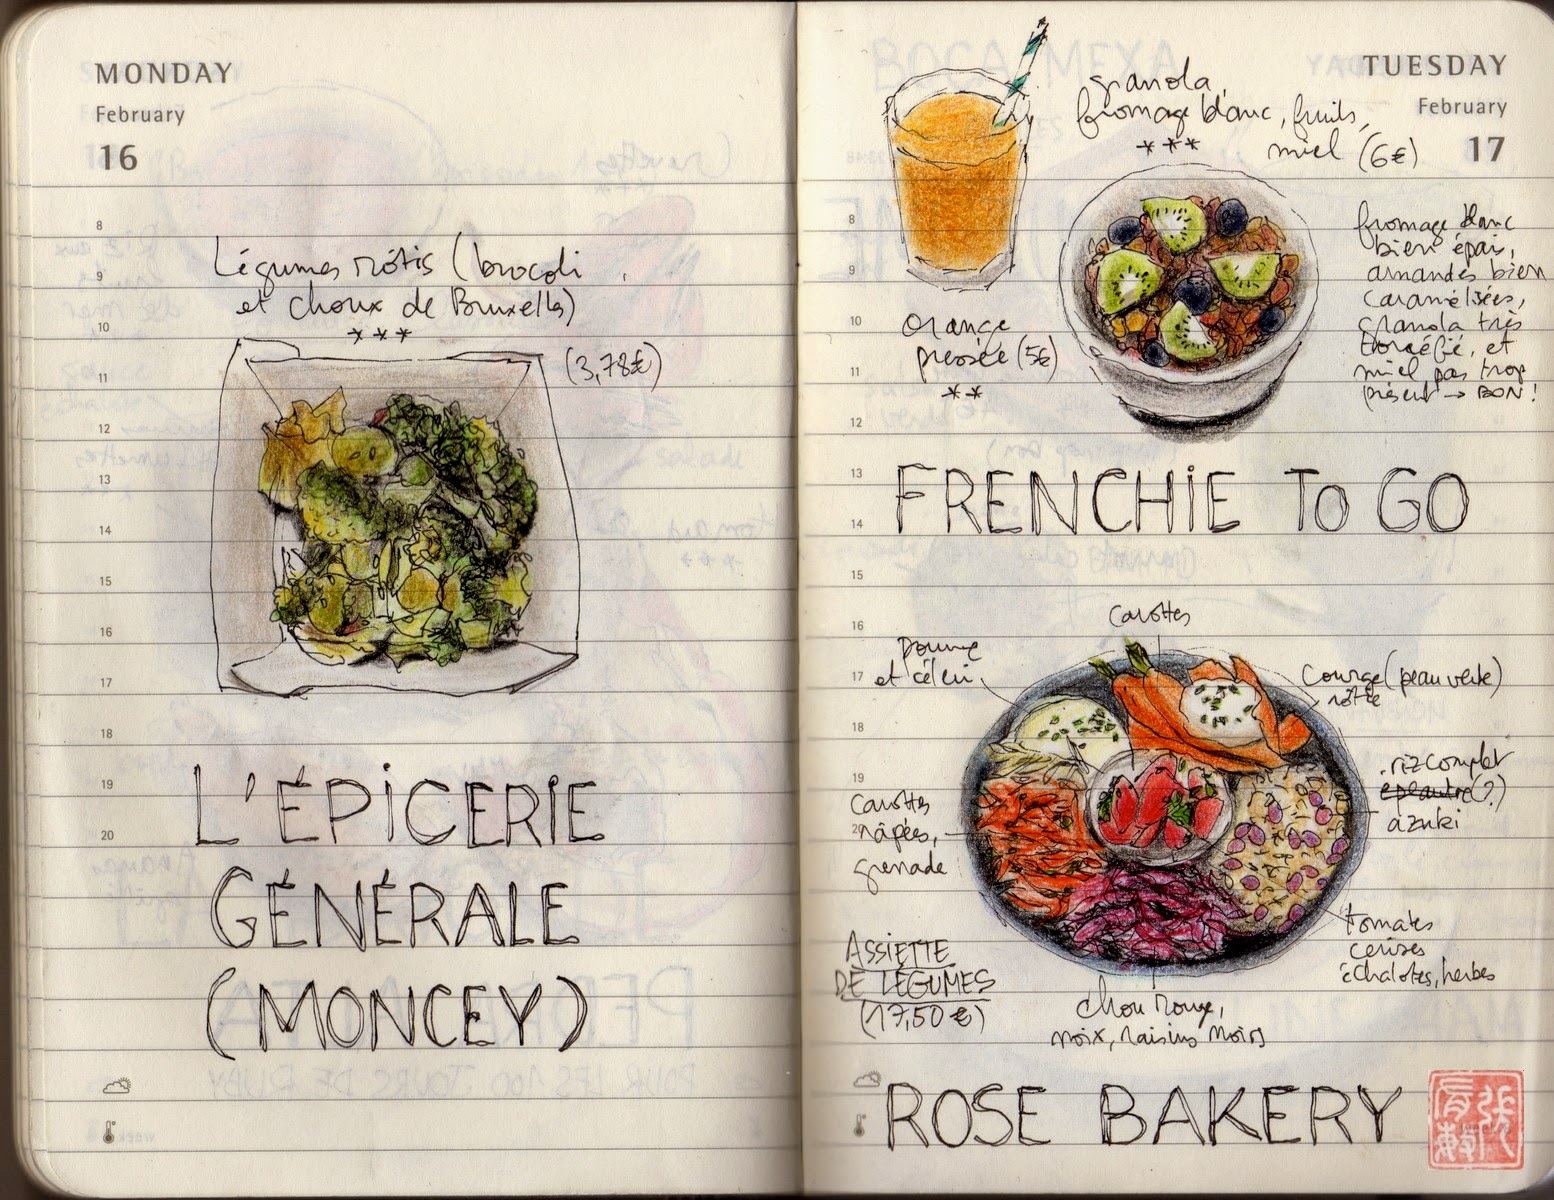 MONDAY
February
16
8
Légumes rôtis (brocoli
9
et choux de Bruxelles)
10
***
(3,78€)
11
12
13
14
15
16
17
18
19
20
L'ÉPICERIE
GÉNÉRALE
(MONCEY)
TUESDAY
February
17
granola,
fromage blanc, fruits,
miel (6€)
***
8
9
10
11
12
13
14
15
16
17
18
19
orange
pressée (5€)
**
fromage blanc
bien épais,
amandes bien
caramélisées,
granola très
torréfié, et
miel pas trop
présent → BON!
FRENCHIE TO GO
carottes
Pomme
et céleri
Courge (peau verte)
rôtie
riz complet
épeautre (?)
azuki
carottes
râpées,
grenade
tomates
cerises
échalotes, herbes
ASSIETTE
DE LÉGUMES
(17,50 €)
chou rouge,
noix, raisins noirs
ROSE BAKERY